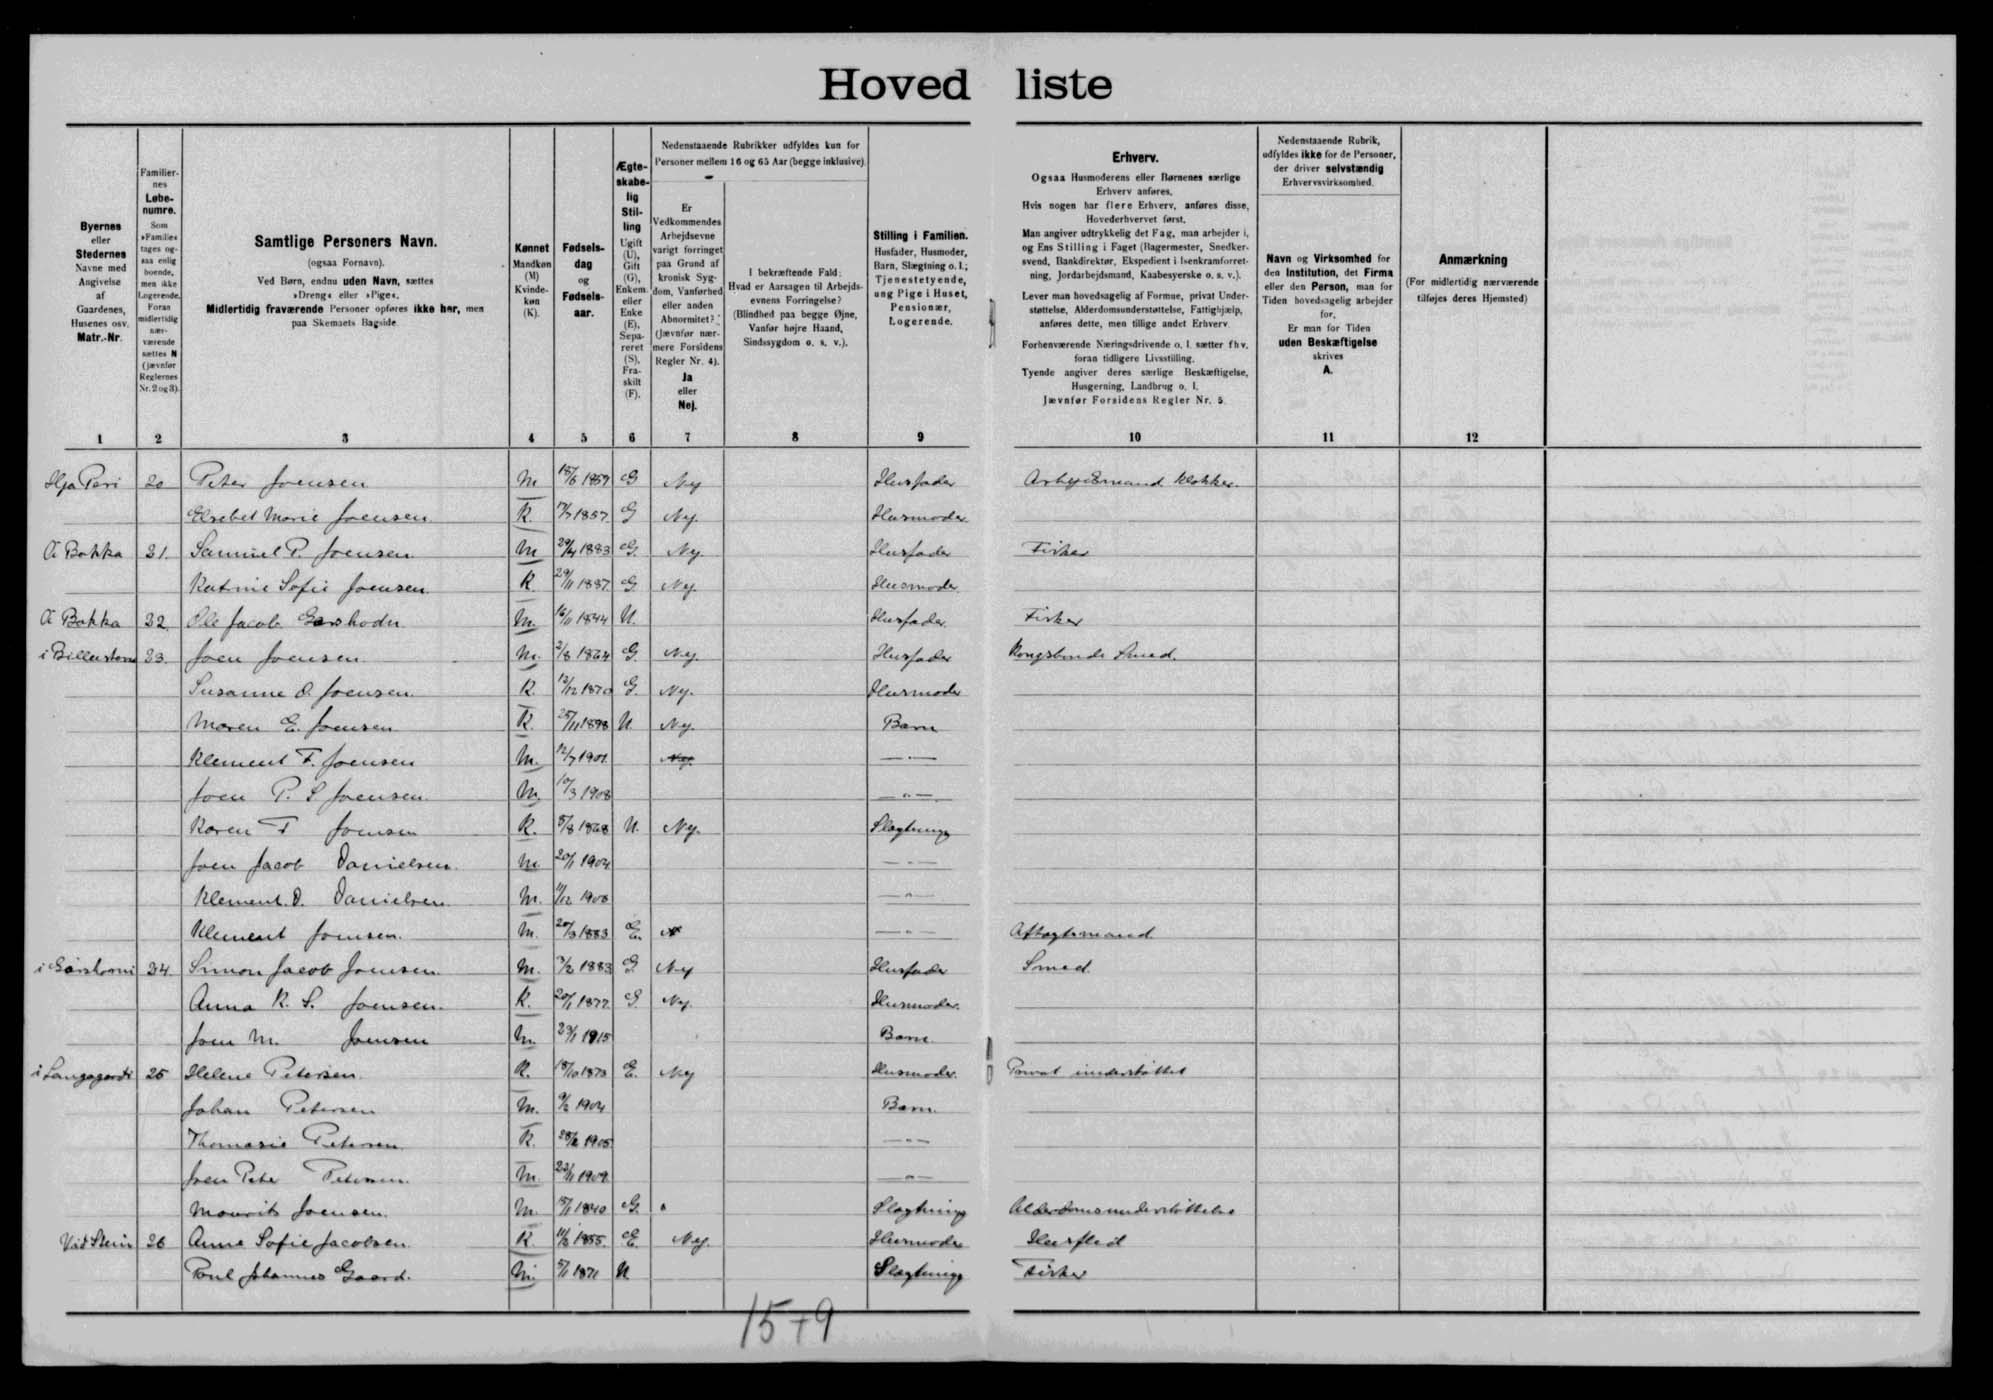 Hovedliste
Byernes
eller
Stedernes
Navne med
Angivelse
af
Gaardenes,
Husenes osv.
Matr.-Nr.
Familier-
nes
Løbe-
numre.
Som
»Familie«
tages og-
saa enlig
boende,
men ikke
Logerende.
Foran
midlertidig
nær-
værende
sættes N
(jævnfør
Reglernes
Nr. 2 og 3).
Samtlige Personers Navn.
(ogsaa Fornavn).
Ved Børn, endnu uden Navn, sættes
»Dreng« eller »Pige«.
Midlertidig fraværende Personer opføres ikke her, men
paa Skemaets Bagside.
Kønnet
Mandkøn
(M)
Kvinde-
køn
(K).
Fødsels-
dag
og
Fødsels-
aar.
Ægte-
skabe-
lig
Stil-
ling
Ugift
(U),
Gift
(G),
Enkem.
eller
Enke
(E),
Sepa-
reret
(S),
Fra-
skilt
(F).
Nedenstaaende Rubrikker udfyldes kun for
Personer mellem 16 og 65 Aar (begge inklusive).
Er
Vedkommendes
Arbejdsevne
varigt forringet
paa Grund af
kronisk Syg-
dom, Vanførhed
eller anden
Abnormitet?
(Jævnfør nær-
mere Forsidens
Regler Nr. 4).
Ja
eller
Nej.
I bekræftende Fald:
Hvad er Aarsagen til Arbejds-
evnens Forringelse?
(Blindhed paa begge Øjne,
Vanfør højre Haand,
Sindssygdom o. s. v.).
Stilling i Familien.
Husfader, Husmoder,
Barn, Slægtning o. l.;
Tjenestetyende,
ung Pige i Huset,
Pensionær,
Logerende.
Erhverv.
Ogsaa Husmoderens eller Børnenes særlige
Erhverv anføres.
Hvis nogen har flere Erhverv, anføres disse,
Hovederhvervet først.
Man angiver udtrykkelig det Fag, man arbejder i,
og Ens Stilling i Faget (Bagermester, Snedker-
svend, Bankdirektør, Ekspedient i Isenkramforret-
ning, Jordarbejdsmand, Kaabesyerske o. s. v.).
Lever man hovedsagelig af Formue, privat Under-
støttelse, Alderdomsunderstøttelse, Fattighjælp,
anføres dette, men tillige andet Erhverv.
Forhenværende Næringsdrivende o. l. sætter fhv.
foran tidligere Livsstilling.
Tyende angiver deres særlige Beskæftigelse,
Husgerning, Landbrug o. l.
Jævnfør Forsidens Regler Nr. 5.
Nedenstaaende Rubrik,
udfyldes ikke for de Personer,
der driver selvstændig
Erhvervsvirksomhed.
Navn og Virksomhed for
den Institution, det Firma
eller den Person, man for
Tiden hovedsagelig arbejder
for.
Er man for Tiden
uden Beskæftigelse
skrives
A.
Anmærkning
(For midlertidig nærværende
tilføjes deres Hjemsted)
1 2 3 4 5 6 7 8 9 10 11 12
Peter Joensen M 1859 G Nej Husfader Arbejdsmand. Klokker.
Elsebet Marie Joensen K. 1857 G Nej. Husmoder
Á Bakka 31. Samuel P. Joensen M 1883 G. Nej. Husfader Fisker
Katrine Sofie Joensen K. 29/11 1887 G. Nej. Husmoder
Á Bakka 32. Ole Jacob M. 16/11 1844 U. Husfader. Fisker
33. Joen Joensen M. 2/8 1864 G. Nej. Husfader Kongsbonde Smed.
Susanne D. Joensen K. 12/12 1870 G. Nej. Husmoder
Maren E. Joensen K. 25/11 1898 U. Nej. Barn
Klement F. Joensen M. 12/7 1901 Nej. — " —
Joen P. S Joensen M. 10/3 1908 — " —
Karen F Joensen K. 5/8 1868 U. Nej. Slægtning
Joen Jacob Danielsen. M. 20/1 1904 — " —
Klement. D. Danielsen M. 11/12 1900 — " —
Klement Joensen. M. E. — " — Aftægtsmand
34. Simon Jacob Joensen M. 1883 G. Nej Husfader Smed.
Anna K. S. Joensen. K. 20/1 1877 G. Nej. Husmoder.
Joen M. Joensen M. 23/1 1915 Barn
Helene Petersen. K. 18/10 1873 E. Nej Husmoder. Privat understøttet
Johan Petersen M. 9/2 1904 Barn.
Thomasie Petersen K. 1905 — " —
Joen Peter Petersen M. 22/11 1909 — " —
Mourits Joensen. M. 1840 G. " Slægtning Alderdomsunderstøttelse
Við Stein 36 Anne Sofie Jacobsen K 1855. E. Nej. Husmoder Husflid
Poul Johannes Gaard. M. 5/1 1871 U Slægtning Fisker
15+9